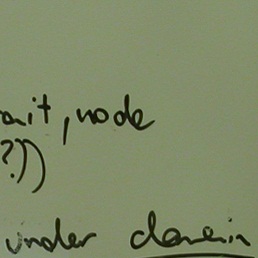 ait, node
?))
under domain